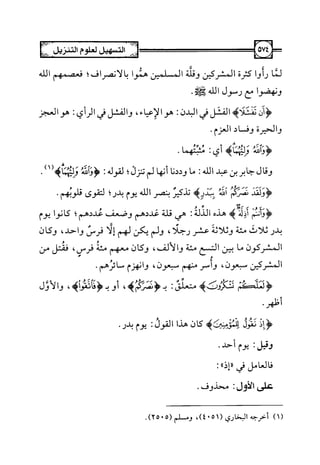 ٥٧٤
التسهيل لعلوم التنزيل
لمَّا رأوا كثرة المشركين وقلَّة المسلمين همُّوا بالانصراف؛ فعصمهم الله
ونهضوا مع رسول الله ﷺ.
﴿أَن تَفْشَلَا﴾ الفشل في البدن: هو الإعياء، والفشل في الرأي: هو العجز
والحيرة وفساد العزم.
﴿وَاللَّهُ وَلِيُّهُمَا﴾ أي: مُثبِّتهما.
وقال جابر بن عبد الله: ما وددنا أنها لم تنزل؛ لقوله: ﴿وَاللَّهُ وَلِيُّهُمَا﴾(١).
﴿وَلَقَدْ نَصَرَكُمُ اللَّهُ بِبَدْرٍ﴾ تذكيرٌ بنصر الله يوم بدر؛ لتقوى قلوبُهم.
﴿وَأَنتُمْ أَذِلَّةٌ﴾ هذه الذلَّةُ: هي قلة عَددهم وضعف عُددهم؛ كانوا يوم
بدر ثلاث مئة وثلاثةَ عشر رجلًا، ولم يكن لهم إلَّا فرسٌ واحد، وكان
المشركون ما بين التسع مئة والألف، وكان معهم مئةُ فرسٍ، فقُتل من
المشركين سبعون، وأُسر منهم سبعون، وانهزم سائرُهم.
﴿لَعَلَّكُمْ تَشْكُرُونَ﴾ متعلِّقٌ: بـ ﴿نَصَرَكُمُ﴾، أو بـ ﴿فَاتَّقُوا﴾، والأوَّل
أظهر.
﴿إِذْ تَقُولُ لِلْمُؤْمِنِينَ﴾ كان هذا القولُ: يوم بدر.
وقيل: يوم أحد.
فالعامل في «إذ»:
على الأول: محذوف.
(١) أخرجه البخاري (٤٠٥١)، ومسلم (٢٥٠٥).